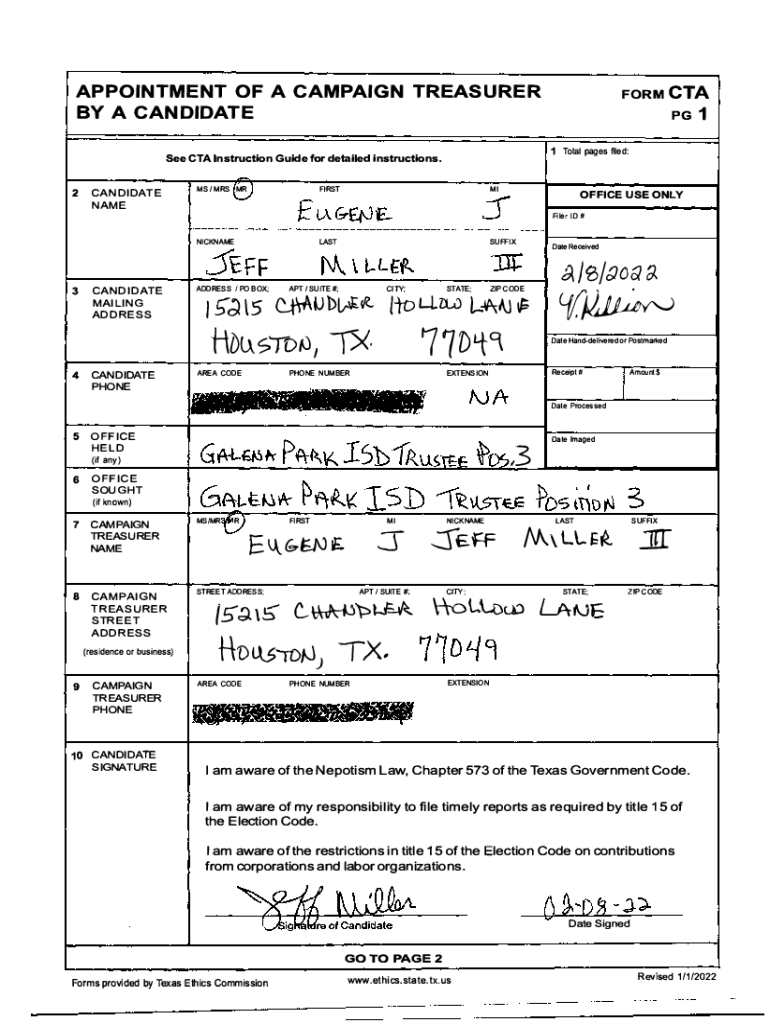 APPOINTMENT OF A CAMPAIGN TREASURER
BY A CANDIDATE
FORM CTA
PG 1
See CTA Instruction Guide for detailed instructions.
1 Total pages filed:
2 CANDIDATE
NAME
MS / MRS / MR FIRST MI
EUGENE J
NICKNAME LAST SUFFIX
JEFF MILLER III
OFFICE USE ONLY
Filer ID #
Date Received
2/8/2022
Y. Killion
3 CANDIDATE
MAILING
ADDRESS
ADDRESS / PO BOX; APT / SUITE #; CITY; STATE; ZIP CODE
15215 CHANDLER HOLLOW LANE
HOUSTON, TX. 77049
Date Hand-delivered or Postmarked
4 CANDIDATE
PHONE
AREA CODE PHONE NUMBER EXTENSION
NA
Receipt # Amount $
Date Processed
5 OFFICE
HELD
(if any)
GALENA PARK ISD TRUSTEE POS. 3
Date Imaged
6 OFFICE
SOUGHT
(if known)
GALENA PARK ISD TRUSTEE POSITION 3
7 CAMPAIGN
TREASURER
NAME
MS/MRS/MR FIRST MI NICKNAME LAST SUFFIX
EUGENE J JEFF MILLER III
8 CAMPAIGN
TREASURER
STREET
ADDRESS
(residence or business)
STREET ADDRESS; APT / SUITE #; CITY; STATE; ZIP CODE
15215 CHANDLER HOLLOW LANE
HOUSTON, TX. 77049
9 CAMPAIGN
TREASURER
PHONE
AREA CODE PHONE NUMBER EXTENSION
10 CANDIDATE
SIGNATURE
I am aware of the Nepotism Law, Chapter 573 of the Texas Government Code.
I am aware of my responsibility to file timely reports as required by title 15 of
the Election Code.
I am aware of the restrictions in title 15 of the Election Code on contributions
from corporations and labor organizations.
Jeff Miller 02-08-22
Signature of Candidate Date Signed
GO TO PAGE 2
Forms provided by Texas Ethics Commission www.ethics.state.tx.us Revised 1/1/2022